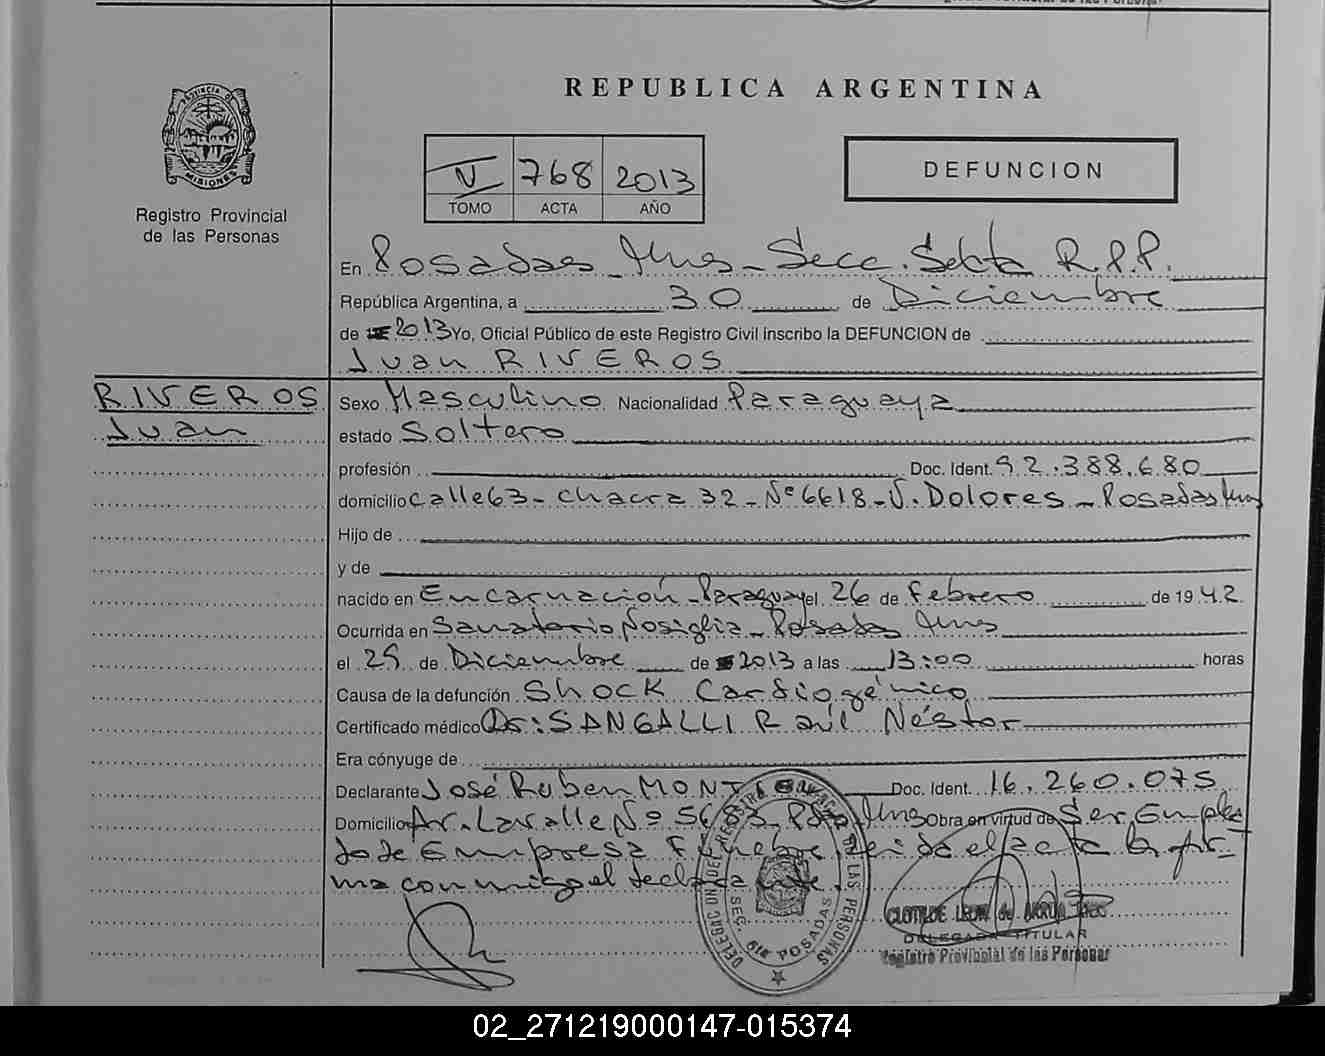 REPUBLICA ARGENTINA
PROVINCIA DE MISIONES
Registro Provincial
de las Personas
768 2013
TOMO ACTA AÑO
DEFUNCION
En Posadas Mnes - Secc. Sexta R.P.P.
República Argentina, a 30 de Diciembre
de 2013 Yo, Oficial Público de este Registro Civil inscribo la DEFUNCION de
Juan RIVEROS
RIVEROS
Juan
Sexo Masculino Nacionalidad Paraguaya
estado Soltero
profesión Doc. Ident. 92.388.680
domicilio calle 63 - chacra 32 - Nº 6618 - V. Dolores - Posadas Mnes
Hijo de
y de
nacido en Encarnación - Paraguay el 26 de Febrero de 1942
Ocurrida en Sanatorio Nosiglia - Posadas Mnes
el 29 de Diciembre de 2013 a las 13:00 horas
Causa de la defunción Shock Cardiogénico
Certificado médico Dr: SANGALLI Raúl Néstor
Era cónyuge de
Declarante José Ruben Doc. Ident. 16.260.075
Domicilio Av. Lavalle Nº Mnes Obra en virtud de Ser Emplea
do de Empresa Fúnebre. Leida el acta la fir-
ma conmigo el declarante.
DELEGACION DEL REGISTRO DE LAS PERSONAS
SEC. 6ta POSADAS
CLOTILDE LEON de
DELEGADA TITULAR
Registro Provincial de las Personas
02_271219000147-015374